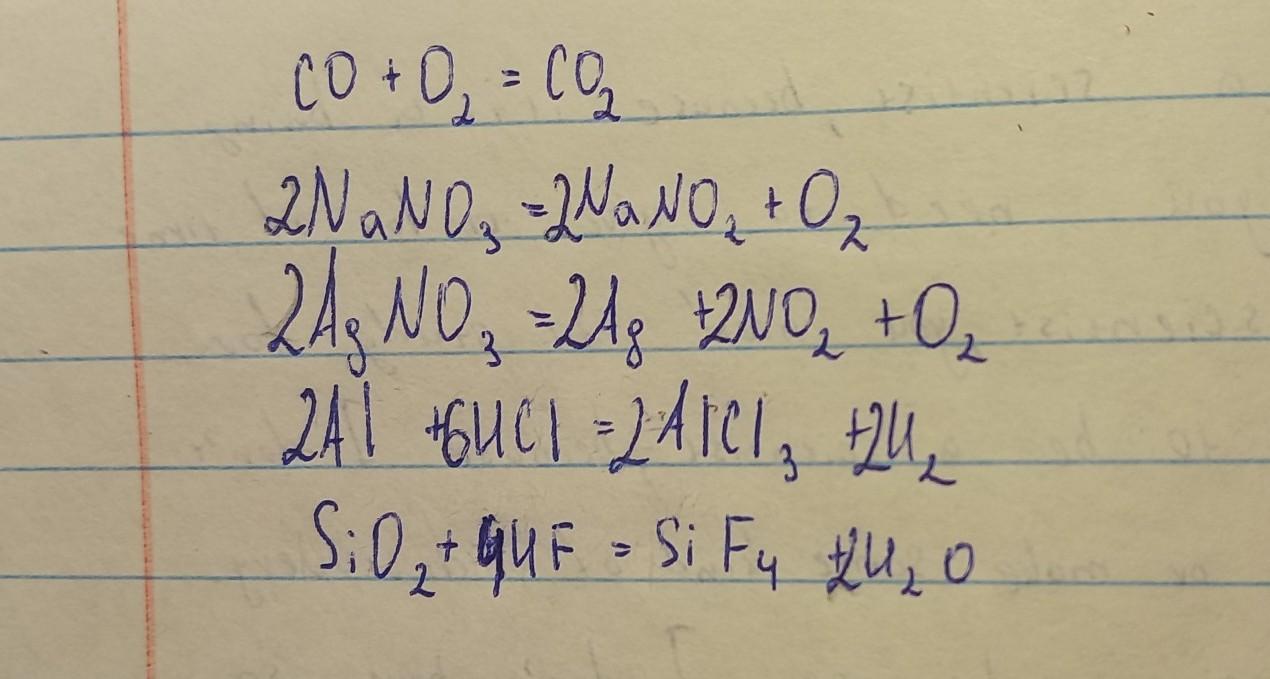 CO + O₂ = CO₂
2NaNO₃ = 2NaNO₂ + O₂
2AgNO₃ = 2Ag + 2NO₂ + O₂
2Al + 6HCl = 2AlCl₃ + 2H₂
SiO₂ + 4HF = SiF₄ + 2H₂O